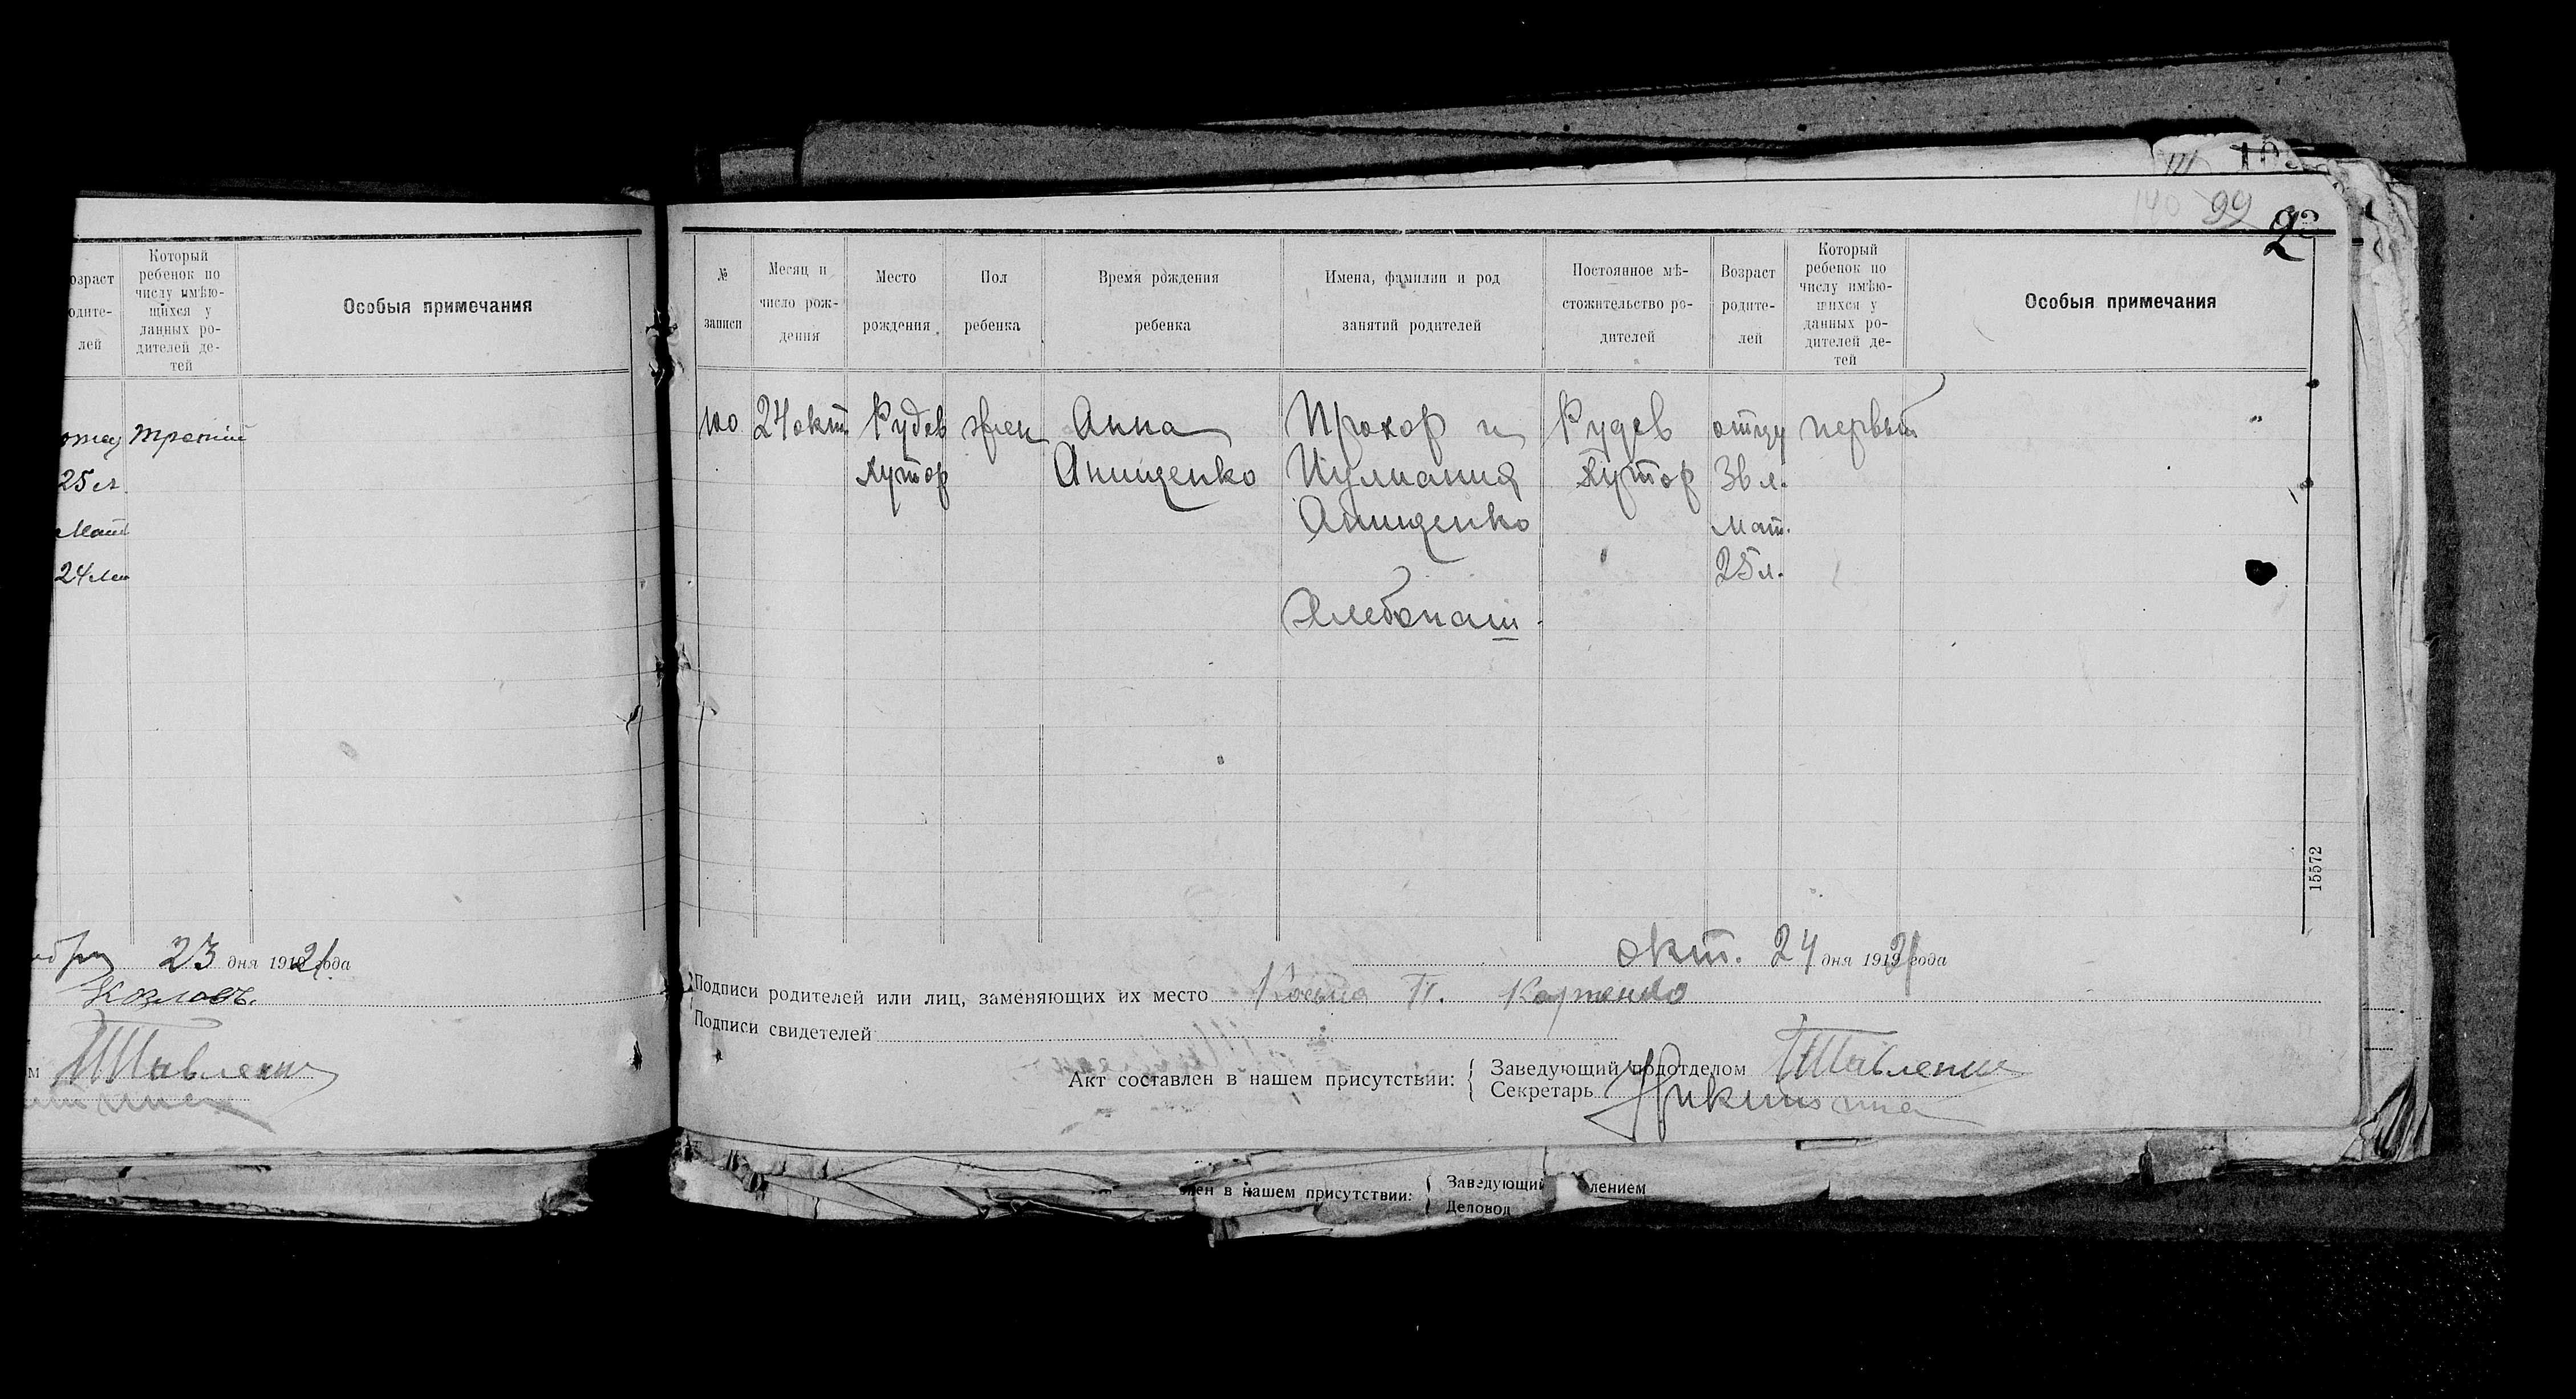 озраст
одите-
лей
Который
ребенок по
числу имѣю-
щихся у
данных ро-
дителей де-
тей
Особыя примечания
третий
25 л
Мат
24 ле
23 дня 1921 года
Козловъ.
140 99
№
записи
Месяц и
число рож-
дения
Место
рождения
Пол
ребенка
Время рождения
ребенка
Имена, фамилии и род
занятий родителей
Постоянное мѣ-
стожительство ро-
дителей
Возраст
родите-
лей
Который
ребенок по
числу имѣю-
щихся у
данных ро-
дителей де-
тей
Особыя примечания
100 24 окт. Рудев жен Анна Прохор и Рудев отцу первый
Хутор Анищенко Иулиания Хутор 36 л.
Анищенко мат.
25 л.
Хлебопаш.
15572
окт. 24 дня 1921 года
Подписи родителей или лиц, заменяющих их место
Подписи свидетелей
Акт составлен в нашем присутствии: Заведующий подотделом
Секретарь
ен в нашем присутствии: Заведующий лением
Деловод